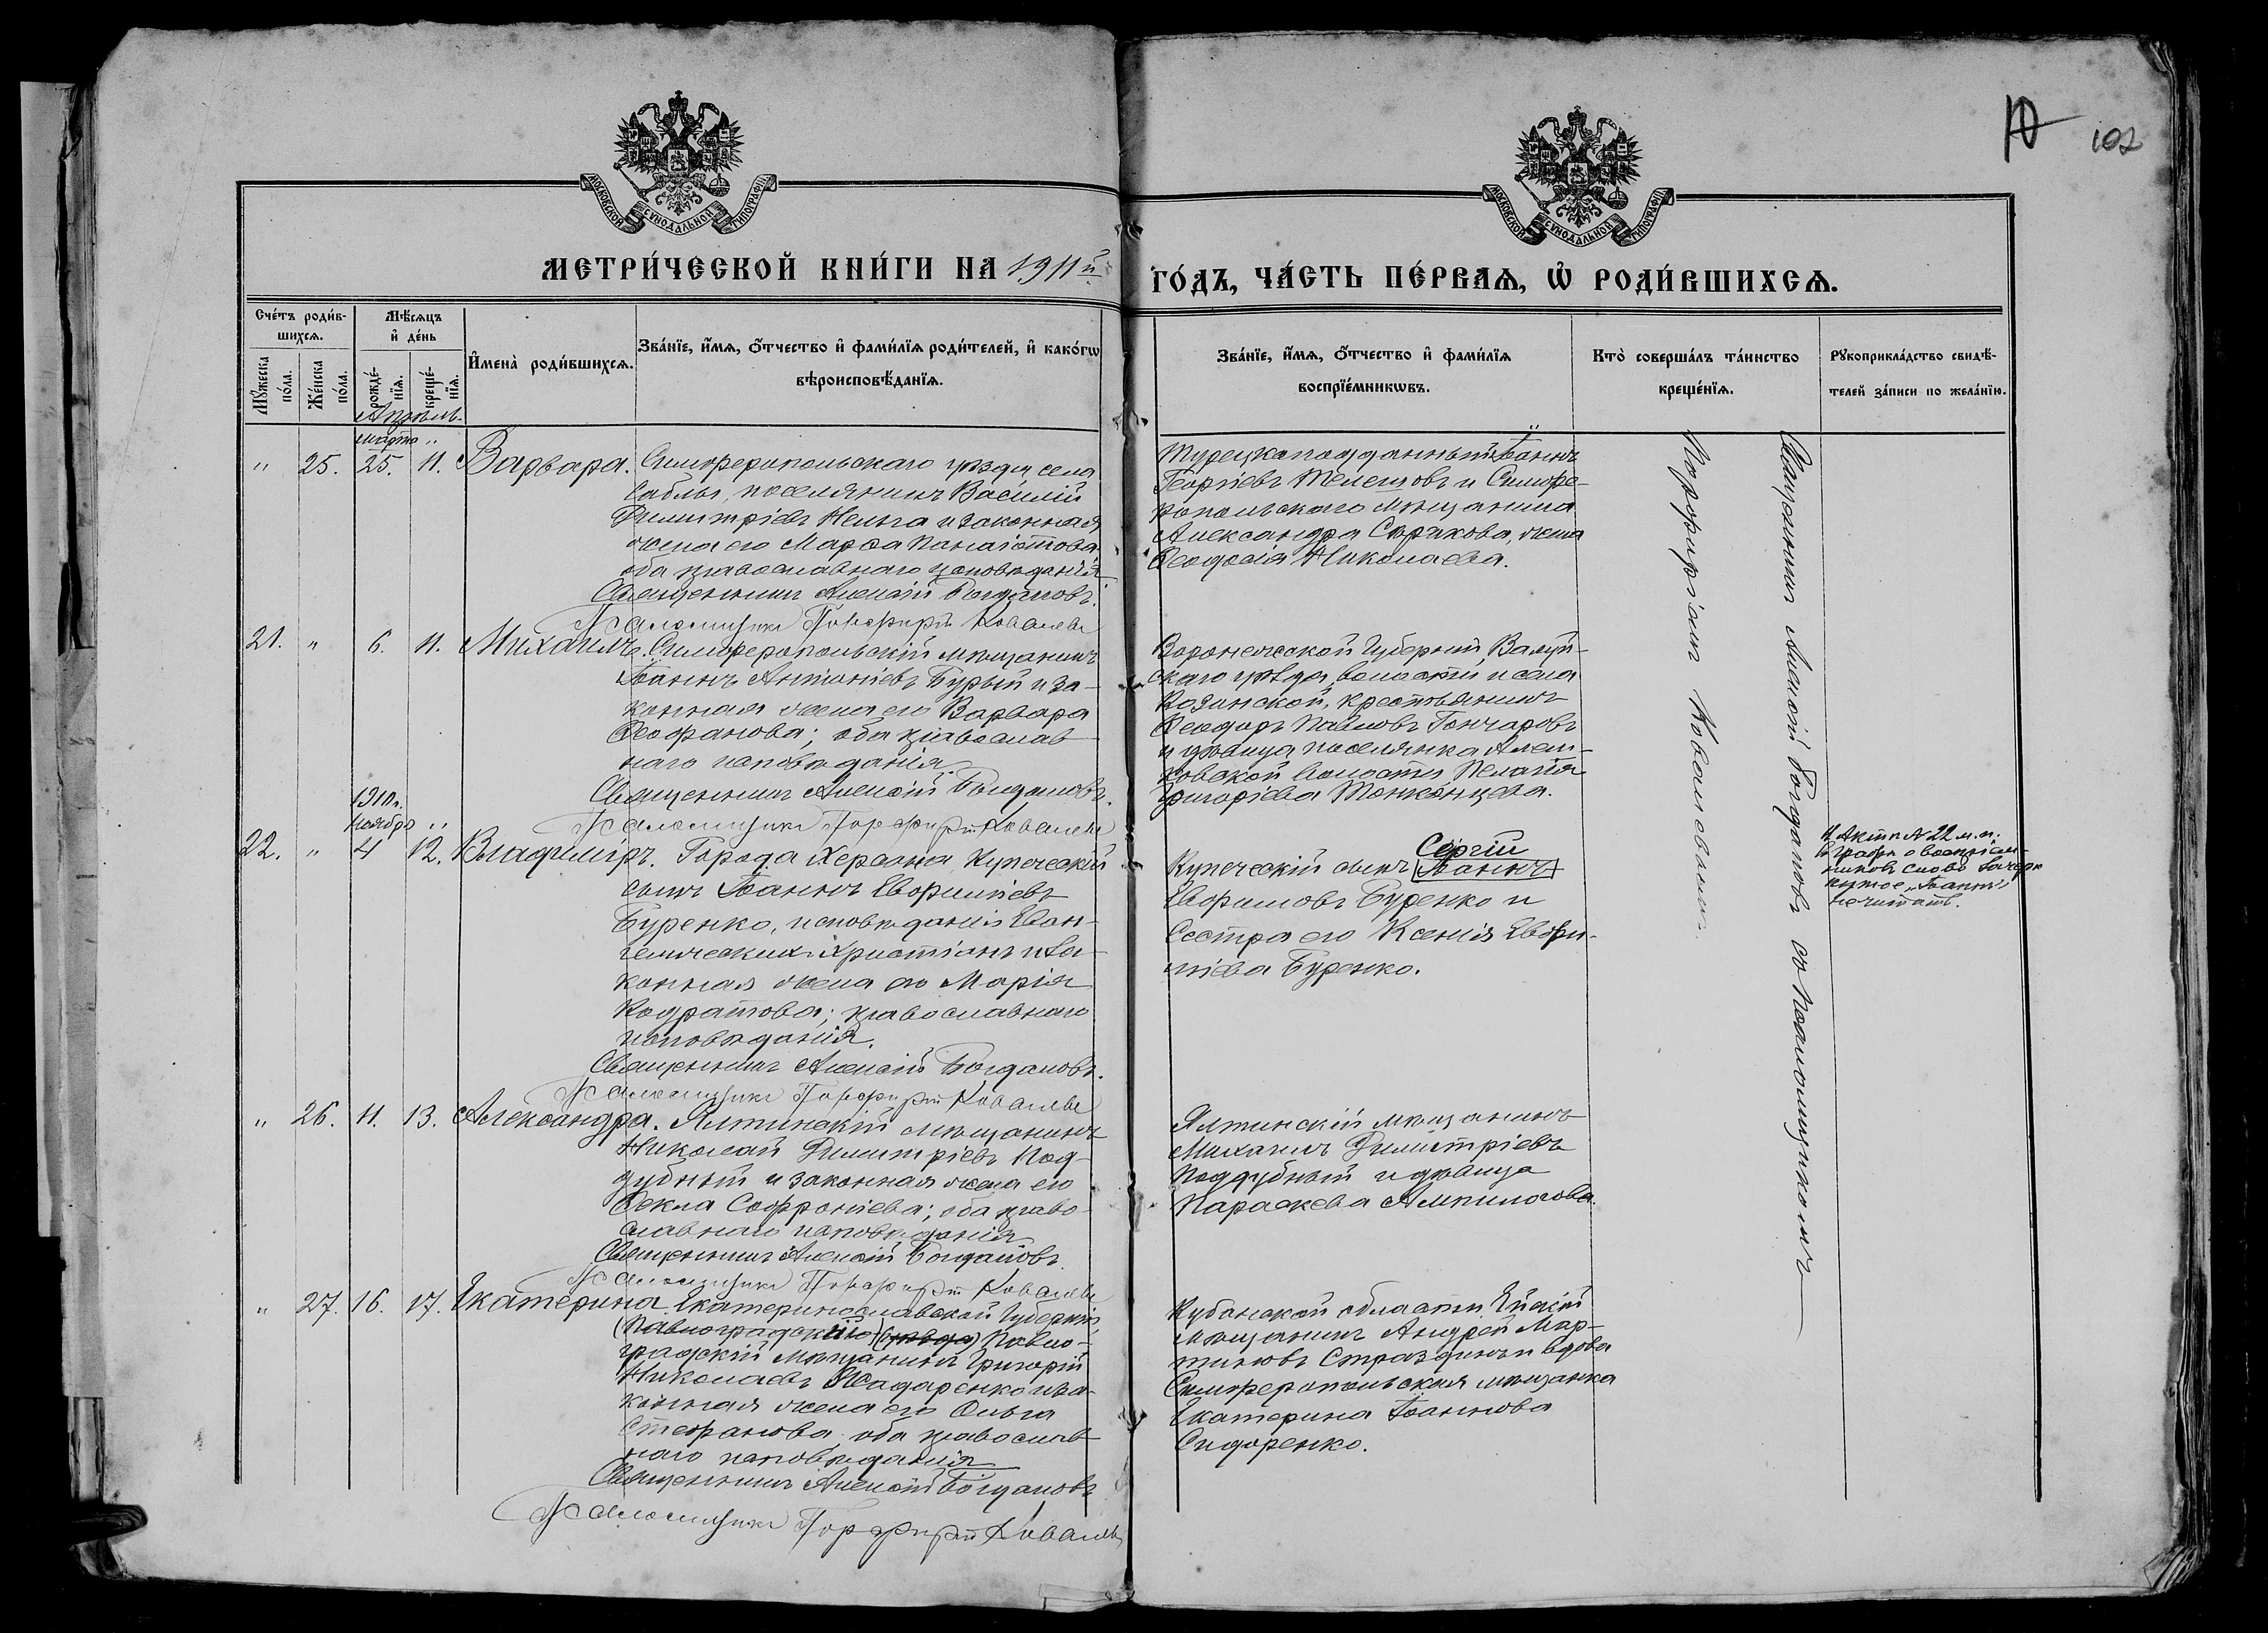 102
МОСКОВСКОЙ СУНОДАЛЬНОЙ ТИПОГРАФІИ
МОСКОВСКОЙ СУНОДАЛЬНОЙ ТИПОГРАФІИ
МЕТРИ́ЧЕСКОЙ КНИ́ГИ НА 1911й
ГО́ДЪ, ЧА́СТЬ ПЕ́РВАѦ, Ѡ҆ РОДИ́ВШИХСѦ.
Сче́тъ роди́в-
шихсѧ.
Мѣ́сѧцъ
и҆ де́нь
Мꙋ́жеска по́ла.
Же́нска по́ла.
рожде́-
нїѧ.
креще́-
нїѧ.
И҆мена̀ роди́вшихсѧ.
Зва́нїе, и҆́мѧ, ѻ҆́тчество и҆ фами́лїѧ роди́телей, и҆ како́гѡ
вѣроисповѣ́данїѧ.
Зва́нїе, и҆́мѧ, ѻ҆́тчество и҆ фами́лїѧ
воспрїе́мникѡвъ.
Кто̀ соверша́лъ та́инство
креще́нїѧ.
Рꙋкоприкла́дство свидѣ́-
телей за́писи по жела́нїю.
Апрѣль
Марта "
" 25. 25. 11. Варвара. Симферопольскаго уѣзда села
Саблы, поселянинъ Василій
Димитріевъ Нельга и законная
жена его Марѳа Панаіотова
оба православнаго исповѣданія
Священникъ Алексій Богдановъ.
Псаломщикъ Порфирій Ковалевъ
Турецкоподданный Іоаннъ
Георгіевъ Телещовъ и Симфе-
ропольскаго мѣщанина
Александра Сѣрикова, жена
Ѳеодосія Николаева.
21. " 6. 11. Михаилъ. Симферопольскій мѣщанинъ
Іоаннъ Антоніевъ Бурый и за-
конная жена его Варвара
Ѳеофанова; оба православ-
наго исповѣданія.
Священникъ Алексій Богдановъ.
Псаломщикъ Порфирій Ковалевъ
Воронежской Губерніи, Валуй-
скаго уѣзда, волости и села
Казинской, крестьянинъ
Ѳеодоръ Павловъ Гончаровъ
и дѣвица поселянка Алеш-
ковской волости Пелагія
Григоріева Тонконцева.
1910г.
Ноябрь "
22. " 4 12. Владиміръ. Города Херсона Купеческій
сынъ Іоаннъ Евфиміевъ
Буренко, исповѣданія Еван-
гелическихъ Христіанъ и за-
конная жена его Марія
Кодратова; православнаго
исповѣданія.
Священникъ Алексій Богдановъ.
Псаломщикъ Порфирій Ковалевъ
Сергій
Купеческій сынъ Іоаннъ
Евфимовъ Буренко и
Сестра его Ксенія Евфи-
міева Буренко.
Къ Актѣ № 22 м. п.
въ графѣ о воспріем-
никовъ слово зачерк-
нутое „Іоаннъ"
не читать.
" 26. 11. 13. Александра. Ялтинскій мѣщанинъ
Николай Димитріевъ Под-
дубный и законная жена его
Ѳекла Софроніева; оба право-
славнаго исповѣданія
Священникъ Алексій Богдановъ.
Псаломщикъ Порфирій Ковалевъ
Ялтинскій мѣщанинъ
Михаилъ Димитріевъ
Поддубный и дѣвица
Параскева Ампилогова.
" 27. 16. 17. Екатерина. Екатеринославской Губерніи,
(Павлоградскаго уѣзда) Павло-
градскій мѣщанинъ Григорій
Николаевъ Жадаренко и за-
конная жена его Ольга
Стефанова оба православ-
наго исповѣданія
Священникъ Алексій Богдановъ
Псаломщикъ Порфирій Ковалевъ
Кубанской области Ейскій
мѣщанинъ Андрей Мар-
тиновъ Страздинъ и вдова
Симферопольская мѣщанка
Екатерина Іоаннова
Сидоренко.
Священникъ Алексій Богдановъ съ Псаломщикомъ
Порфиріемъ Ковалевымъ.